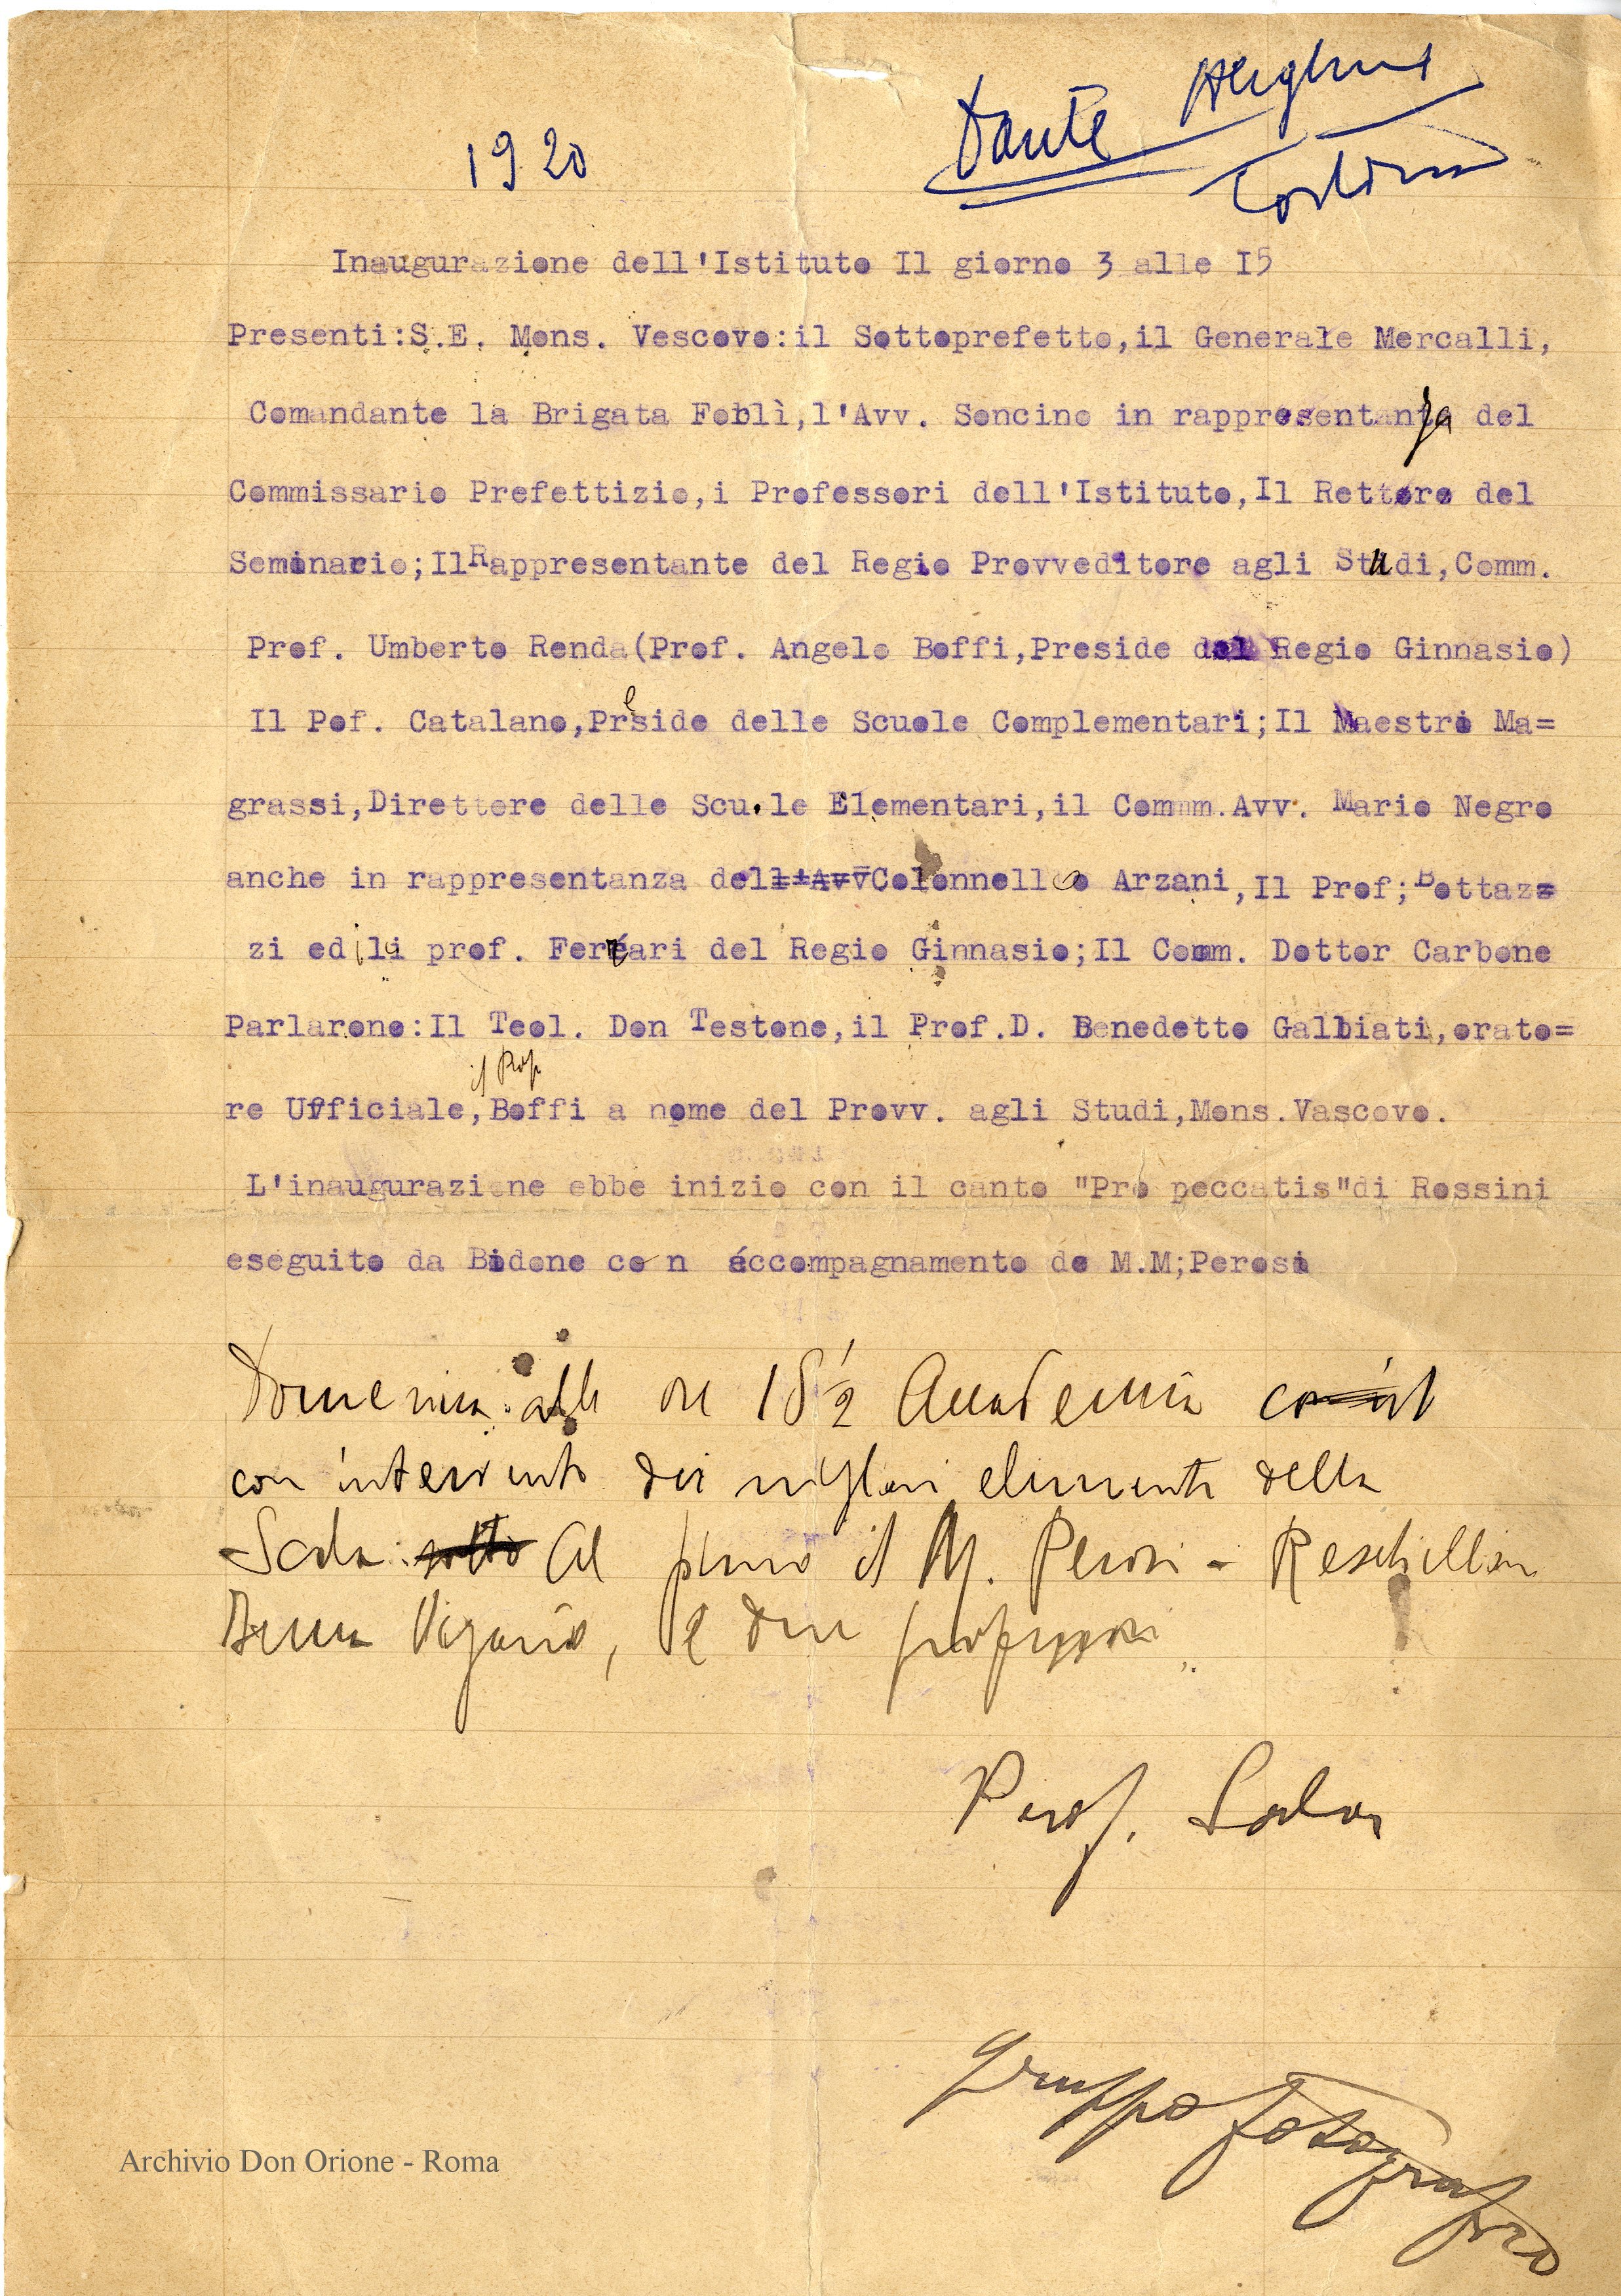 1920
Dante Alighieri
Tortona
Inaugurazione dell'Istituto Il giorno 3 alle I5
Presenti:S.E. Mons. Vescovo:il Sottoprefetto,il Generale Mercalli,
Comandante la Brigata Forlì,l'Avv. Soncino in rappresentanza del
Commissario Prefettizio,i Professori dell'Istituto,Il Rettore del
Seminario;IlRappresentante del Regio Provveditore agli Studi,Comm.
Prof. Umberto Renda(Prof. Angelo Boffi,Preside del Regio Ginnasio)
Il Pof. Catalano,Preside delle Scuole Complementari;Il Maestro Ma=
grassi,Direttore delle Scuole Elementari,il Commm.Avv. Mario Negro
anche in rappresentanza dell'AvvColonnello Arzani,Il Prof;Bottaz=
zi ed il prof. Ferrari del Regio Ginnasio;Il Comm. Dottor Carbone
Parlarono:Il Teol. Don Testone,il Prof.D. Benedetto Galbiati,orato=
il Prof
re Ufficiale,Boffi a nome del Provv. agli Studi,Mons.Vascovo.
L'inaugurazione ebbe inizio con il canto "Pro peccatis"di Rossini
eseguito da Bidone con accompagnamento de M.M;Perosi
Domenica alle ore 18 1/2 Accademia
con intervento dei migliori elementi della
Scala sotto Al piano il M. Perosi -
Viganò, e due professori
Prof.
Gruppo fotografico
Archivio Don Orione - Roma